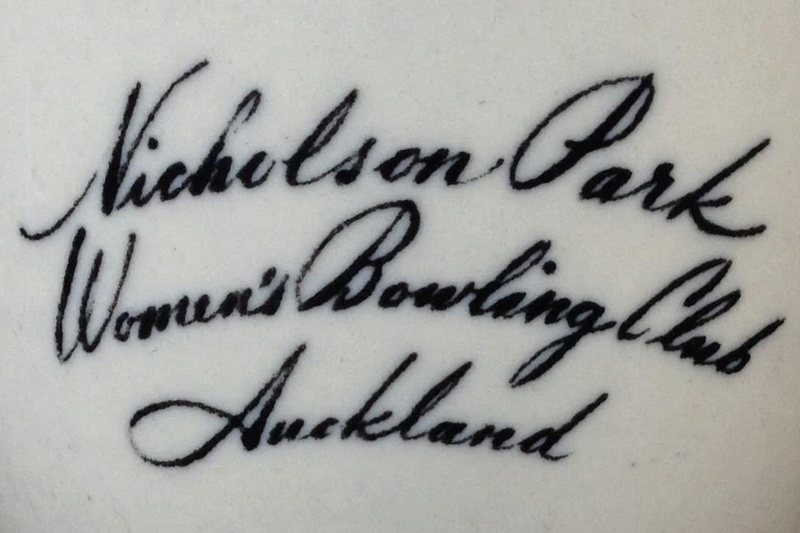 Nicholson Park
Women's Bowling Club
Auckland